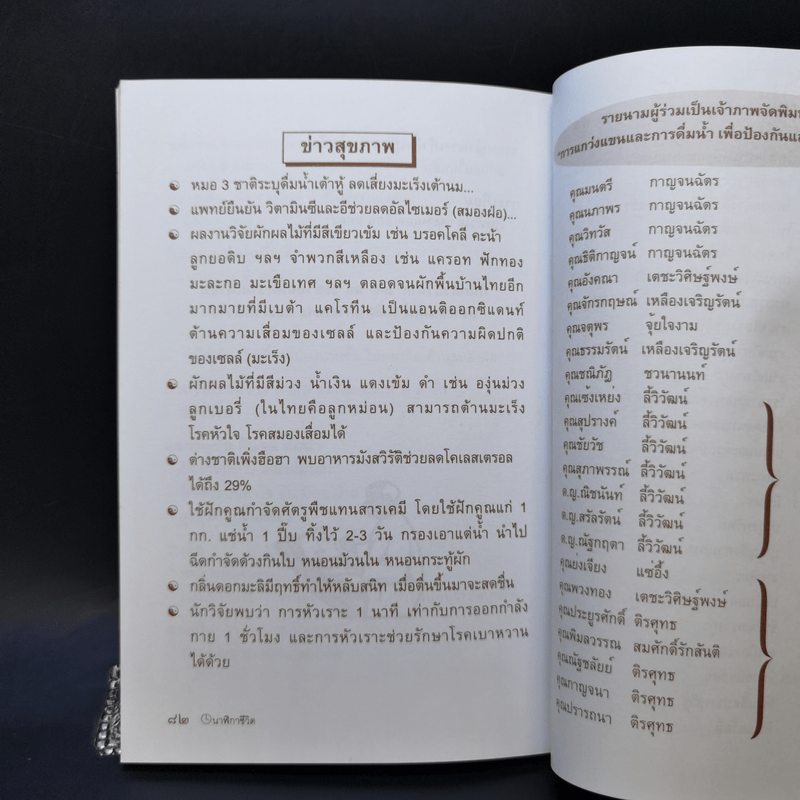 ข่าวสุขภาพ
หมอ 3 ชาติระบุดื่มน้ำเต้าหู้ ลดเสี่ยงมะเร็งเต้านม...
แพทย์ยืนยัน วิตามินซีและอีช่วยลดอัลไซเมอร์ (สมองฝ่อ)...
ผลงานวิจัยผักผลไม้ที่มีสีเขียวเข้ม เช่น บรอคโคลี คะน้า
ลูกยอดิบ ฯลฯ จำพวกสีเหลือง เช่น แครอท ฟักทอง
มะละกอ มะเขือเทศ ฯลฯ ตลอดจนผักพื้นบ้านไทยอีก
มากมายที่มีเบต้า แคโรทีน เป็นแอนติออกซิแดนท์
ต้านความเสื่อมของเซลล์ และป้องกันความผิดปกติ
ของเซลล์ (มะเร็ง)
ผักผลไม้ที่มีสีม่วง น้ำเงิน แดงเข้ม ดำ เช่น องุ่นม่วง
ลูกเบอรี่ (ในไทยคือลูกหม่อน) สามารถต้านมะเร็ง
โรคหัวใจ โรคสมองเสื่อมได้
ต่างชาติเพิ่งฮือฮา พบอาหารมังสวิรัติช่วยลดโคเลสเตรอล
ได้ถึง 29%
ใช้ฝักคูณกำจัดศัตรูพืชแทนสารเคมี โดยใช้ฝักคูณแก่ 1
กก. แช่น้ำ 1 ปี๊บ ทิ้งไว้ 2-3 วัน กรองเอาแต่น้ำ นำไป
ฉีดกำจัดด้วงกินใบ หนอนม้วนใบ หนอนกระทู้ผัก
กลิ่นดอกมะลิมีฤทธิ์ทำให้หลับสนิท เมื่อตื่นขึ้นมาจะสดชื่น
นักวิจัยพบว่า การหัวเราะ 1 นาที เท่ากับการออกกำลัง
กาย 1 ชั่วโมง และการหัวเราะช่วยรักษาโรคเบาหวาน
ได้ด้วย
๘๒ นาฬิกาชีวิต
รายนามผู้ร่วมเป็นเจ้าภาพจัดพิมพ
"การแกว่งแขนและการดื่มน้ำ เพื่อป้องกันแล
คุณมนตรี กาญจนฉัตร
คุณนภาพร กาญจนฉัตร
คุณวิทวัส กาญจนฉัตร
คุณธิติกาญจน์ กาญจนฉัตร
คุณอังคณา เตชะวิศิษฐ์พงษ์
คุณจักรกฤษณ์ เหลืองเจริญรัตน์
คุณจตุพร จุ้ยใจงาม
คุณธรรมรัตน์ เหลืองเจริญรัตน์
คุณชณิภัฎ ชวนานนท์
คุณเซ้งเหย่ง ลี้วิวัฒน์
คุณสุปรางค์ ลี้วิวัฒน์
คุณชัยวัช ลี้วิวัฒน์
คุณสุภาพรรณ์ ลี้วิวัฒน์
ด.ญ.ณิชนันท์ ลี้วิวัฒน์
ด.ญ.สรัลรัตน์ ลี้วิวัฒน์
ด.ญ.ณัฐกฤตา ลี้วิวัฒน์
คุณย่งเจียง แซ่อึ้ง
คุณพวงทอง เตชะวิศิษฐ์พงษ์
คุณประยูรศักดิ์ ติรศุทธ
คุณพิมลวรรณ สมศักดิ์รักสันติ
คุณณัฐชลัยย์ ติรศุทธ
คุณกาญจนา ติรศุทธ
คุณปรารถนา ติรศุทธ